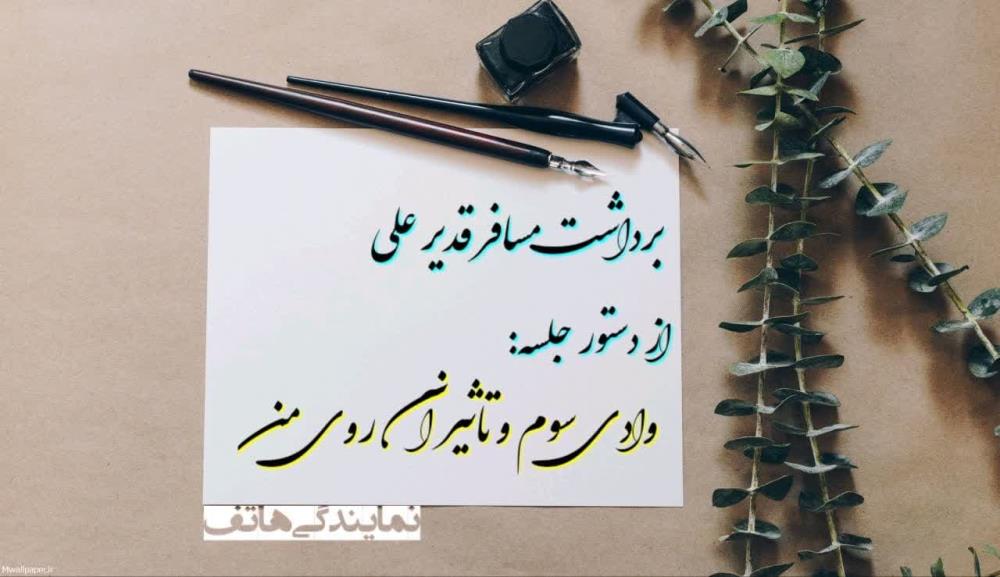 برداشت مسافر قدیر علی
از دستور جلسه:
وادی سوم و تاثیر ان روی من
نمایندگی هاتف
Mwallpaper.ir